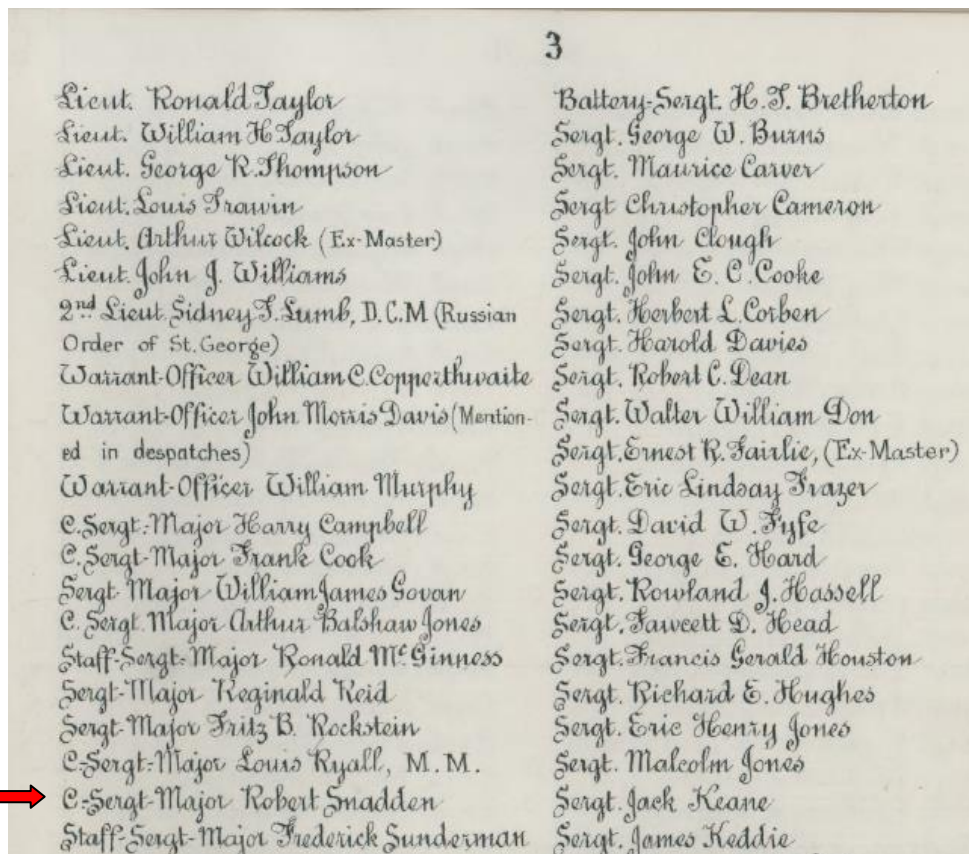 3
Lieut. Ronald Taylor
Lieut. William H Taylor
Lieut. George R. Thompson
Lieut. Louis Trawin
Lieut. Arthur Wilcock (Ex-Master)
Lieut. John J. Williams
2nd Lieut. Sidney F. Lumb, D.C.M (Russian
Order of St. George)
Warrant-Officer William C. Copperthwaite
Warrant-Officer John Morris Davis (Mention-
ed in despatches)
Warrant-Officer William Murphy
C. Sergt.-Major Harry Campbell
C. Sergt-Major Frank Cook
Sergt-Major William James Govan
C. Sergt. Major Arthur Balshaw Jones
Staff-Sergt-Major Ronald McGinness
Sergt-Major Reginald Reid
Sergt-Major Fritz B. Rockstein
C-Sergt-Major Louis Ryall, M.M.
C-Sergt-Major Robert Snadden
Staff-Sergt-Major Frederick Sunderman
Battery-Sergt. H.T. Bretherton
Sergt. George W. Burns
Sergt. Maurice Carver
Sergt Christopher Cameron
Sergt. John Clough
Sergt. John E. C. Cooke
Sergt. Herbert L. Corben
Sergt. Harold Davies
Sergt. Robert C. Dean
Sergt. Walter William Don
Sergt. Ernest R. Fairlie, (Ex-Master)
Sergt. Eric Lindsay Frazer
Sergt. David W. Fyfe
Sergt. George E. Hard
Sergt. Rowland J. Hassell
Sergt. Fawcett D. Head
Sergt. Francis Gerald Houston
Sergt. Richard E. Hughes
Sergt. Eric Henry Jones
Sergt. Malcolm Jones
Sergt. Jack Keane
Sergt. James Keddie